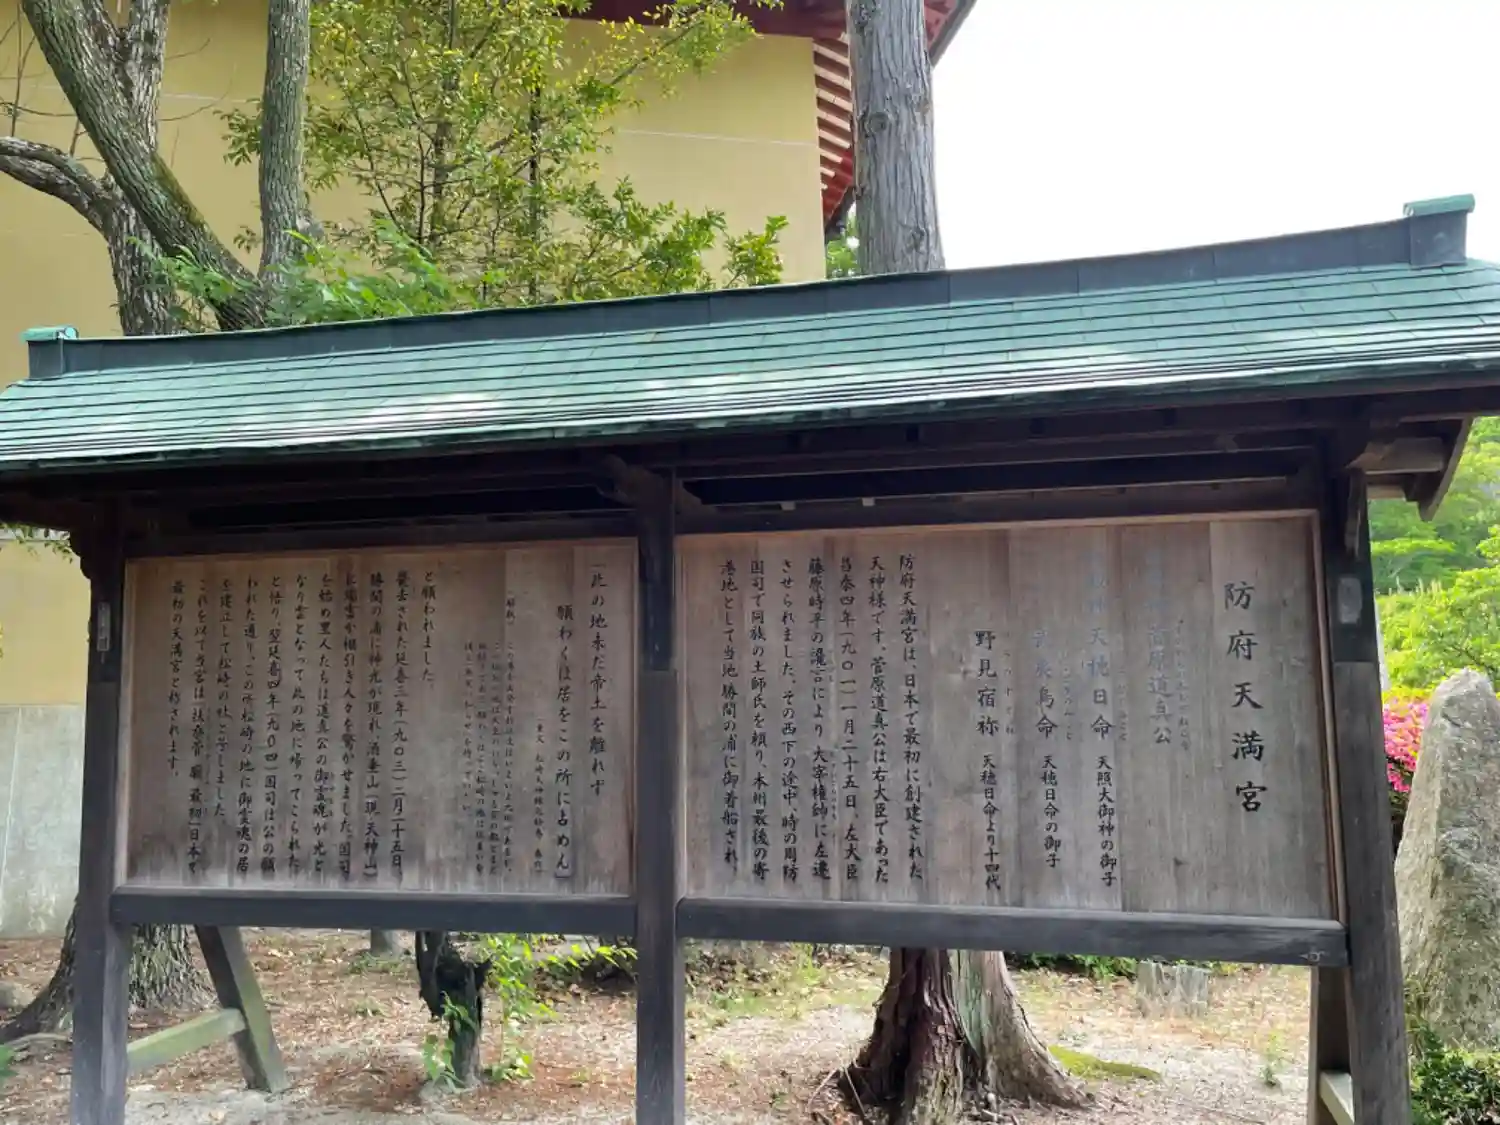 防府天満宮
菅原道真公
天穂日命 天照大御神の御子
武夷鳥命 天穂日命の御子
野見宿祢 天穂日命より十四代
防府天満宮は、日本で最初に創建された
天神様です。菅原道真公は右大臣であった
昌泰四年(九〇一)一月二十五日、左大臣
藤原時平の讒言により、大宰権帥に左遷
させられました。その西下の途中、時の周防
国司で同族の土師氏を頼り、本州最後の寄
港地として当地勝間の浦に御着船され、
「此の地未だ帝土を離れず
願わくは居をこの所に占めん」
と願われました。
薨去された延喜三年(九〇三)二月二十五日、
勝間の浦に神光が現れ、酒垂山(現 天神山)
に瑞雲が棚引き人々を驚かせました。国司
を始め里人たちは道真公の御霊魂が光と
なり雲となって此の地に帰ってこられた
と悟り、翌延喜四年(九〇四)国司は公の願
われた通り、この所松崎の地に御霊魂の居
を建立して松崎の社と号しました。
これを以て当宮は「扶桑菅廟最初」日本で
最初の天満宮と称されます。